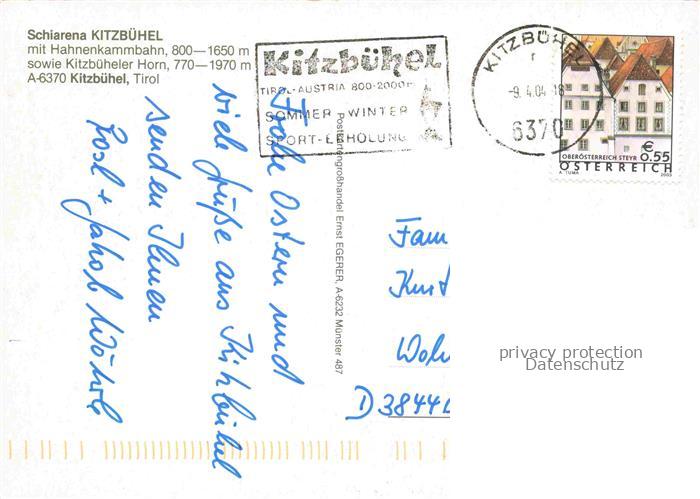 Schiarena KITZBÜHEL
mit Hahnenkammbahn, 800—1650 m
sowie Kitzbüheler Horn, 770—1970 m
A-6370 Kitzbühel, Tirol
Kitzbühel
TIROL-AUSTRIA 800-2000m
SOMMER-WINTER
SPORT-ERHOLUNG
KITZBÜHEL
r
-9. 4.04-18
6370
€ 0.55
OBERÖSTERREICH STEYR
ÖSTERREICH
A. TUMA 2003
Frohe Ostern und
viele Grüße aus Kitzbühel
senden Ihnen
Rosl + Jakob Wöhrl
Postkartengroßhandel Ernst EGERER, A-6232 Münster 487
Fam
Kurt
D 3844
privacy protection
Datenschutz